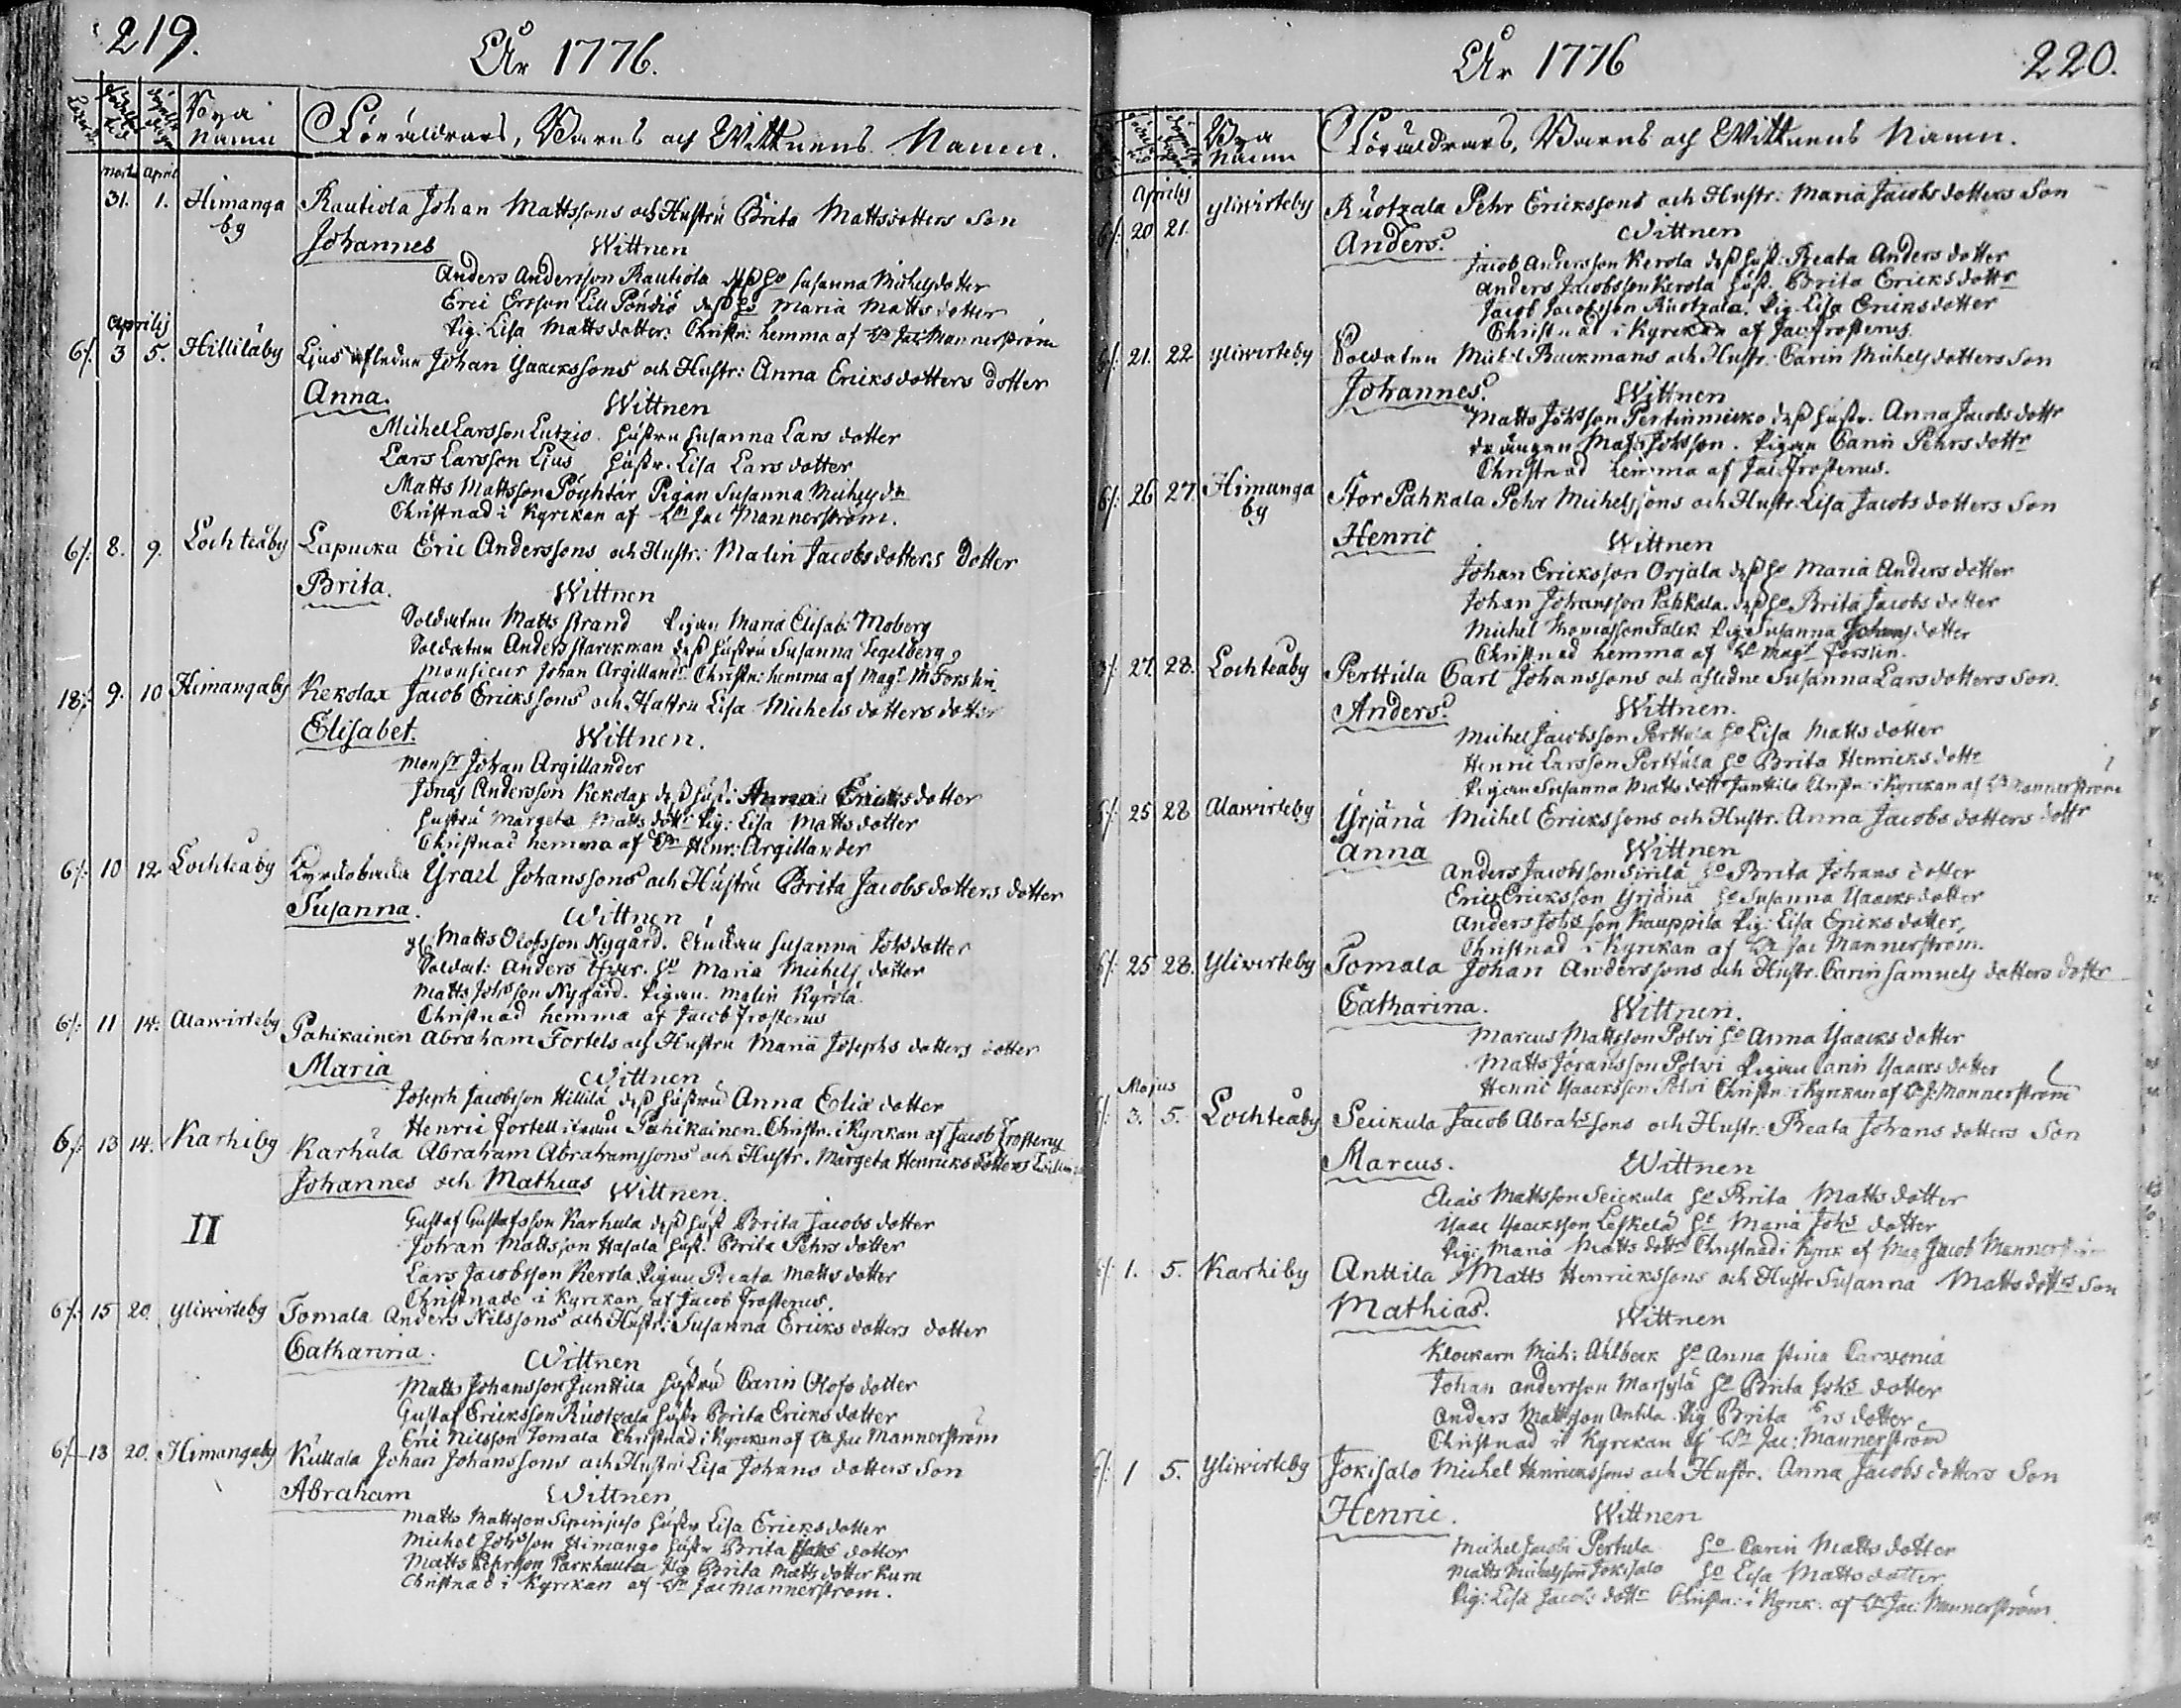 219.
År 1776.
Bya Namn
Föräldrars, Barns och Wittnens Namn.
Martii April
31. 1. Himanga Rautiola Johan Mattssons och Hustru Brita Mattsdotters Son
by
Johannes Wittnen
Anders Andersson Rautiola deß Ho Susanna Michelsdotter
Eric Ersson Lill Pöndiö deß Ho Maria Mattsdotter
Pig: Lisa Mattsdotter. Christn: hemma af Jac Mannerström
Aprilij
6/: 3 5. Hillilåby Ljus afledne Johan Ysaackssons och Hustr: Anna Ericksdotters dotter
Anna. Wittnen
Michel Larsson Lutzio. Hustru Susanna Lars dotter
Lars Larsson Ljus Hustr. Lisa Lars dotter
Matts Mattsson Pöyhtär Pigan Susanna Michels dr
Christnad i Kyrckan af Jac Mannerström.
6/: 8. 9. Lochteåby Lapucka Eric Anderssons och Hustr: Malin Jacobsdotters Dotter
Brita. Wittnen
Soldaten Matts Strand Pigan Maria Elisab: Moberg
Soldaten Anders Starckman deß Hustru Susanna Segelberg
Monsieur Johan Argilland: Christn: hemma af Magr M Forslin
18/: 9. 10 Himangaby Kekolax Jacob Erickssons och Hustru Lisa Michels dotters dotter
Elisabet. Wittnen.
Monsr Johan Argillander
Jonas Andersson Kekolax deß Hust: Anna Ericksdotter
Hustru Margeta Matts dottr Pig: Lisa Matts dotter
Christnad hemma af Henr: Argillander
6/: 10 12 Lochteåby Ysrael Johanssons och Hustru Brita Jacobsdotters dotter
Susanna. Wittnen
Matts Olofsson Nygård. Enckan Susanna Johsdotter
Soldat: Anders Ho Maria Michels dotter
Matts Johsson Nygård. Pigan. Malin Kyrölä
Christnad hemma af Jacob Frosterus
6/: 11 14: Alawirteby Pahikainen Abraham Fortels och Hustru Maria Josephs dotters dotter
Maria Wittnen
Joseph Jacobsson Hillilä deß Hustru Anna Eliæ dotter
Henric Fortell Pahikainen. Christn. i Kyrckan af Jacob Frosterus
6/: 13 14. Karhiby Karhula Abraham Abrahamssons och Hustr. Margeta Henricksdotters
Johannes och Mathias Wittnen.
II
Gustaf Gustafsson Karhula deß Hust Brita Jacobs dotter
Johan Mattsson Hasala Hust. Brita Pehrs dotter
Lars Jacobsson Kerola Pigan Beata Matts dotter
Christnade i Kyrckan af Jacob Frosterus.
6/: 15 20. Yliwirteby Tomala Anders Nilssons och Hustr: Susanna Ericks dotters dotter
Catharina. Wittnen
Matts Johansson Junttila Hustru Carin Olofs dotter
Gustaf Ericksson Ruotzala Hustr Brita Ericks dotter
Eric Nilsson Tomala Christnad i Kyrckan af Jac Mannerström
6/: 13 20. Himangaby Kukkala Johan Johanssons och Hustru Lisa Johans dotters Son
Abraham Wittnen
Matts Mattsson Hustr Lisa Ericksdotter
Michel Johsson Himango Hustr Brita dotter
Matts Pehrsson Parkhauta Pig Brita Matts dotter
Christnad i Kyrckan af Jac Mannerström.
År 1776 220.
Bya Namn
Föräldrars, Barns och Wittnens Namn.
Aprilij
6/: 20 21. Yliwirteby Ruotzala Pehr Erickssons och Hustr: Maria Jacobs dotters Son
Anders. Wittnen
Jacob Andersson Kerola deß Hust: Beata Anders dotter
Anders Jacobsson Kerola Hust. Brita Ericks dottr
Jacob Jacobsson Ruotzala. Pig. Lisa Ericksdotter
Christnad i Kyrckan af Jac Frosterus.
6/: 21. 22 Yliwirteby Soldaten Michel Buckmans och Hustr: Carin Michels dotters Son
Johannes. Wittnen
Matts Johsson Pertinmicko deß Hustr. Anna Jacobs dottr
drängen Matts Johsson. Pigan Carin Pehrs dottr
Christnad hemma af Jac Frosterus.
6/: 26 27. Himanga Stor Pahkala Pehr Michelssons och Hustr. Lisa Jacobs dotters Son
by
Henric Wittnen
Johan Ericksson Orjala deß Ho Maria Anders dotter
Johan Johansson Pahkala. deß Ho Brita Jacobs dotter
Michel Thomasson Falck Pig. Susanna Johans dotter
Christnad hemma af Magr Forslin.
27. 28. Lochteåby Perttula Carl Johanssons och afledne Susanna Larsdotters Son.
Anders. Wittnen.
Michel Jacobsson Perttula Ho Lisa Matts dotter
Henric Larsson Perttula Ho Brita Henricks dottr
Pigan Susanna Matts dottr Junttila Christn: i Kyrckan af Mannerström
6/: 25 28 Alawirteby Yrjänä Michel Erickssons och Hustr. Anna Jacobs dotters dottr
Anna Wittnen
Anders Jacobsson Sirilä Ho Brita Johans dotter
Eric Ericksson Yrjänä Ho Susanna Ysaacksdotter
Anders Johsson Kauppila Pig: Lisa Ericks dotter,
Christnad i Kyrckan af Jac Mannerström.
6/: 25 28. Yliwirteby Tomala Johan Anderssons och Hustr. Carin Samuels dotters dotter
Catharina. Wittnen.
Marcus Mattsson Polvi Ho Anna Ysaacks dotter
Matts Göransson Polvi Pigan Carin Ysaacks dotter
Henric Ysaacksson Polvi Christn: i Kyrckan af J: Mannerström
Majus
3. 5. Lochteåby Seickula Jacob Abrahssons och Hustr: Beata Johans dotters Son
Marcus. Wittnen
Elias Mattsson Seickula Ho Brita Matts dotter
Ysaac Ysaacksson Leskelä Ho Maria Johs dotter
Pig: Maria Matts dottr Christnad i Kyrck af Mag Jacob Mannerström
1. 5. Karhiby Anttila Matts Henrickssons och Hustr Susanna Matts dottrs Son
Mathias. Wittnen
Klockarn Mich: Ahlbeck Ho Anna Stina Carwonia
Johan Andersson Marsylä Ho Brita Johs dotter
Anders Mattsson Antila Pig Brita dotter
Christnad i Kyrckan af Jac: Mannerström
6/: 1 5. Yliwirteby Jokisalo Michel Henrickssons och Hustr. Anna Jacobs dotters Son
Henric. Wittnen
Michel Jacobs Pertula Ho Carin Matts dotter
Matts Michelsson Jokisalo Ho Lisa Matts dotter
Pig: Lisa Jacobs dottr Christn: i Kyrck: af Jac: Mannerström